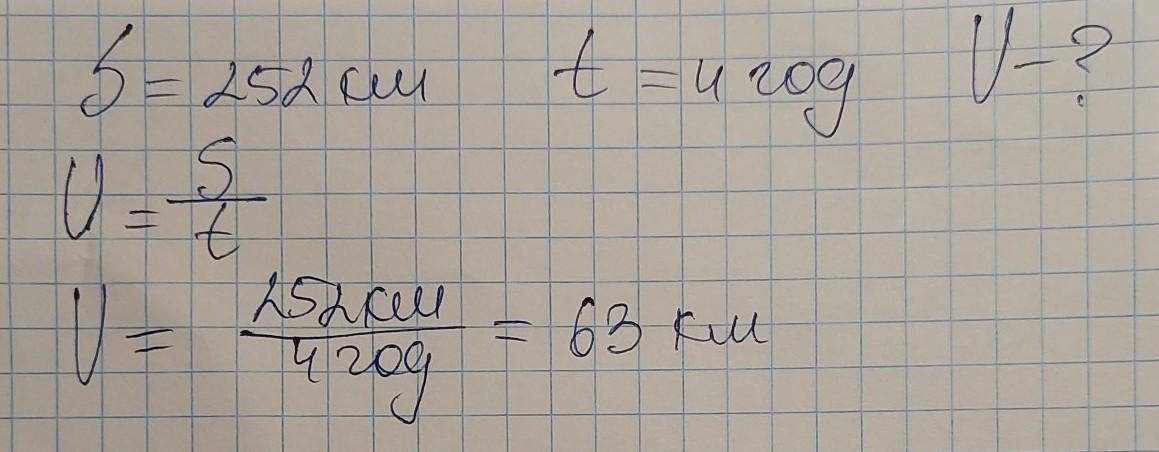 S = 252 км t = 4 год V - ?
V = S/t
V = 252 км / 4 год = 63 км